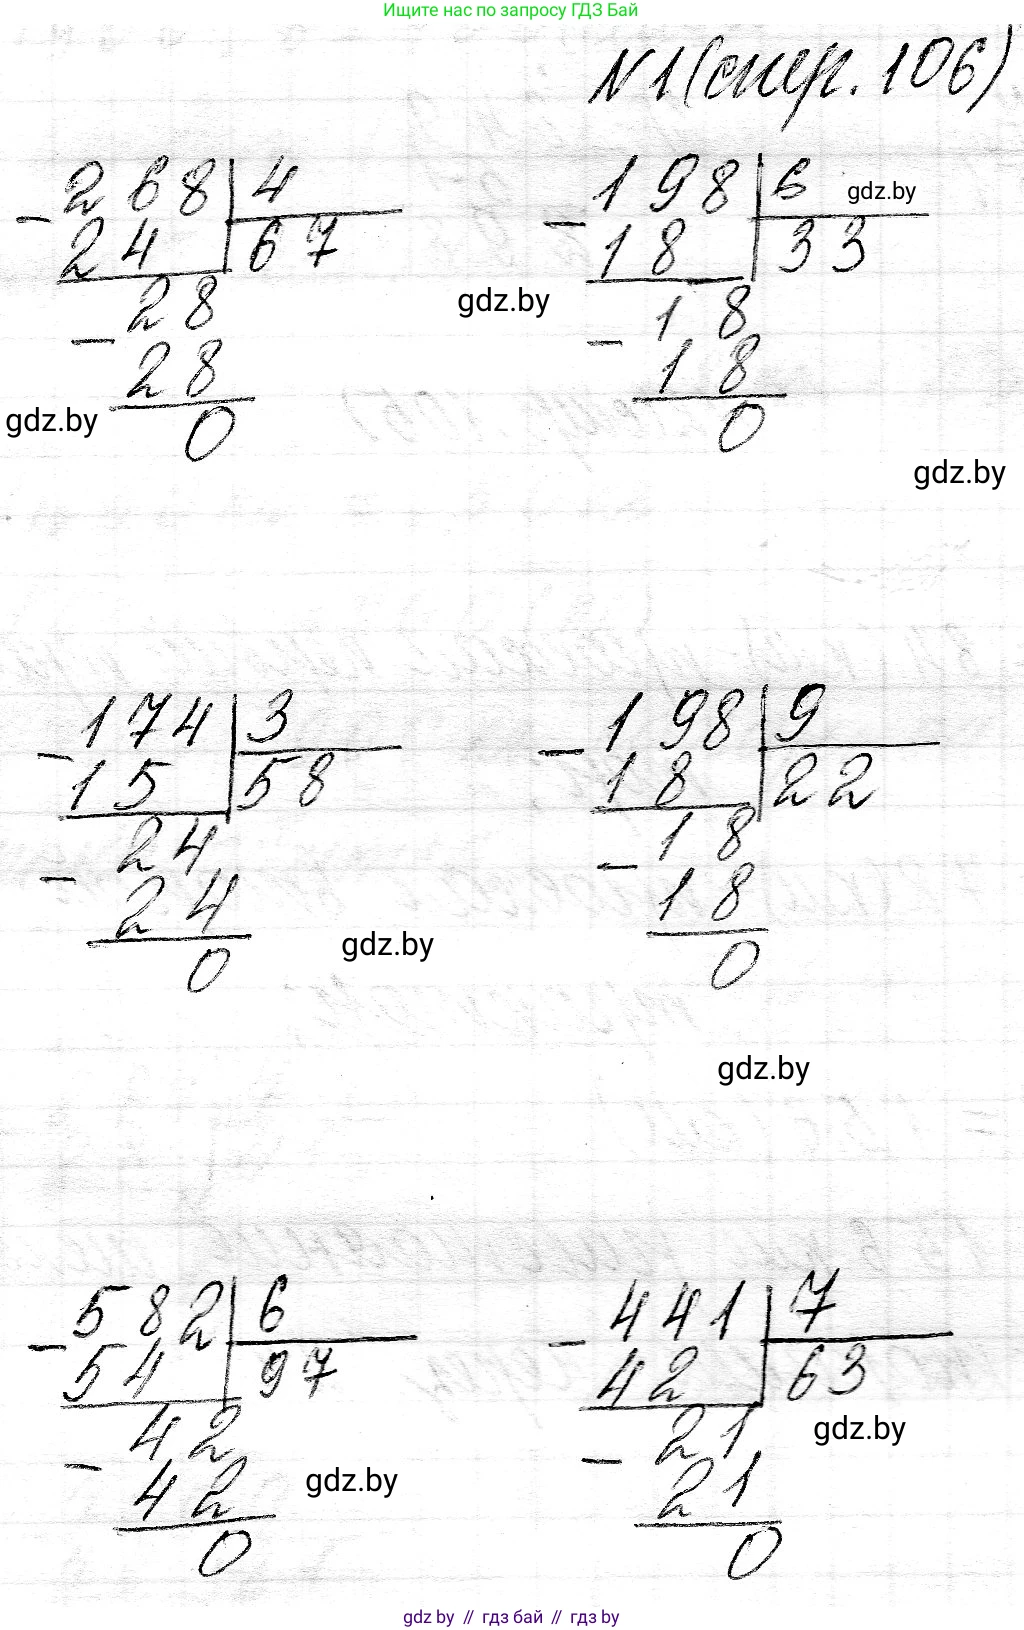 Ищите нас по запросу ГДЗ Бай
N1(стр. 106)
268 4
- 24 67
28
- 28
0
198 6
- 18 33
18
- 18
0
gdz.by
gdz.by
gdz.by
gdz.by
174 3
- 15 58
24
- 24
0
198 9
- 18 22
18
- 18
0
gdz.by
gdz.by
582 6
- 54 97
42
- 42
0
441 7
- 42 63
21
- 21
0
gdz.by
gdz.by
gdz by // гдз бай // гдз by